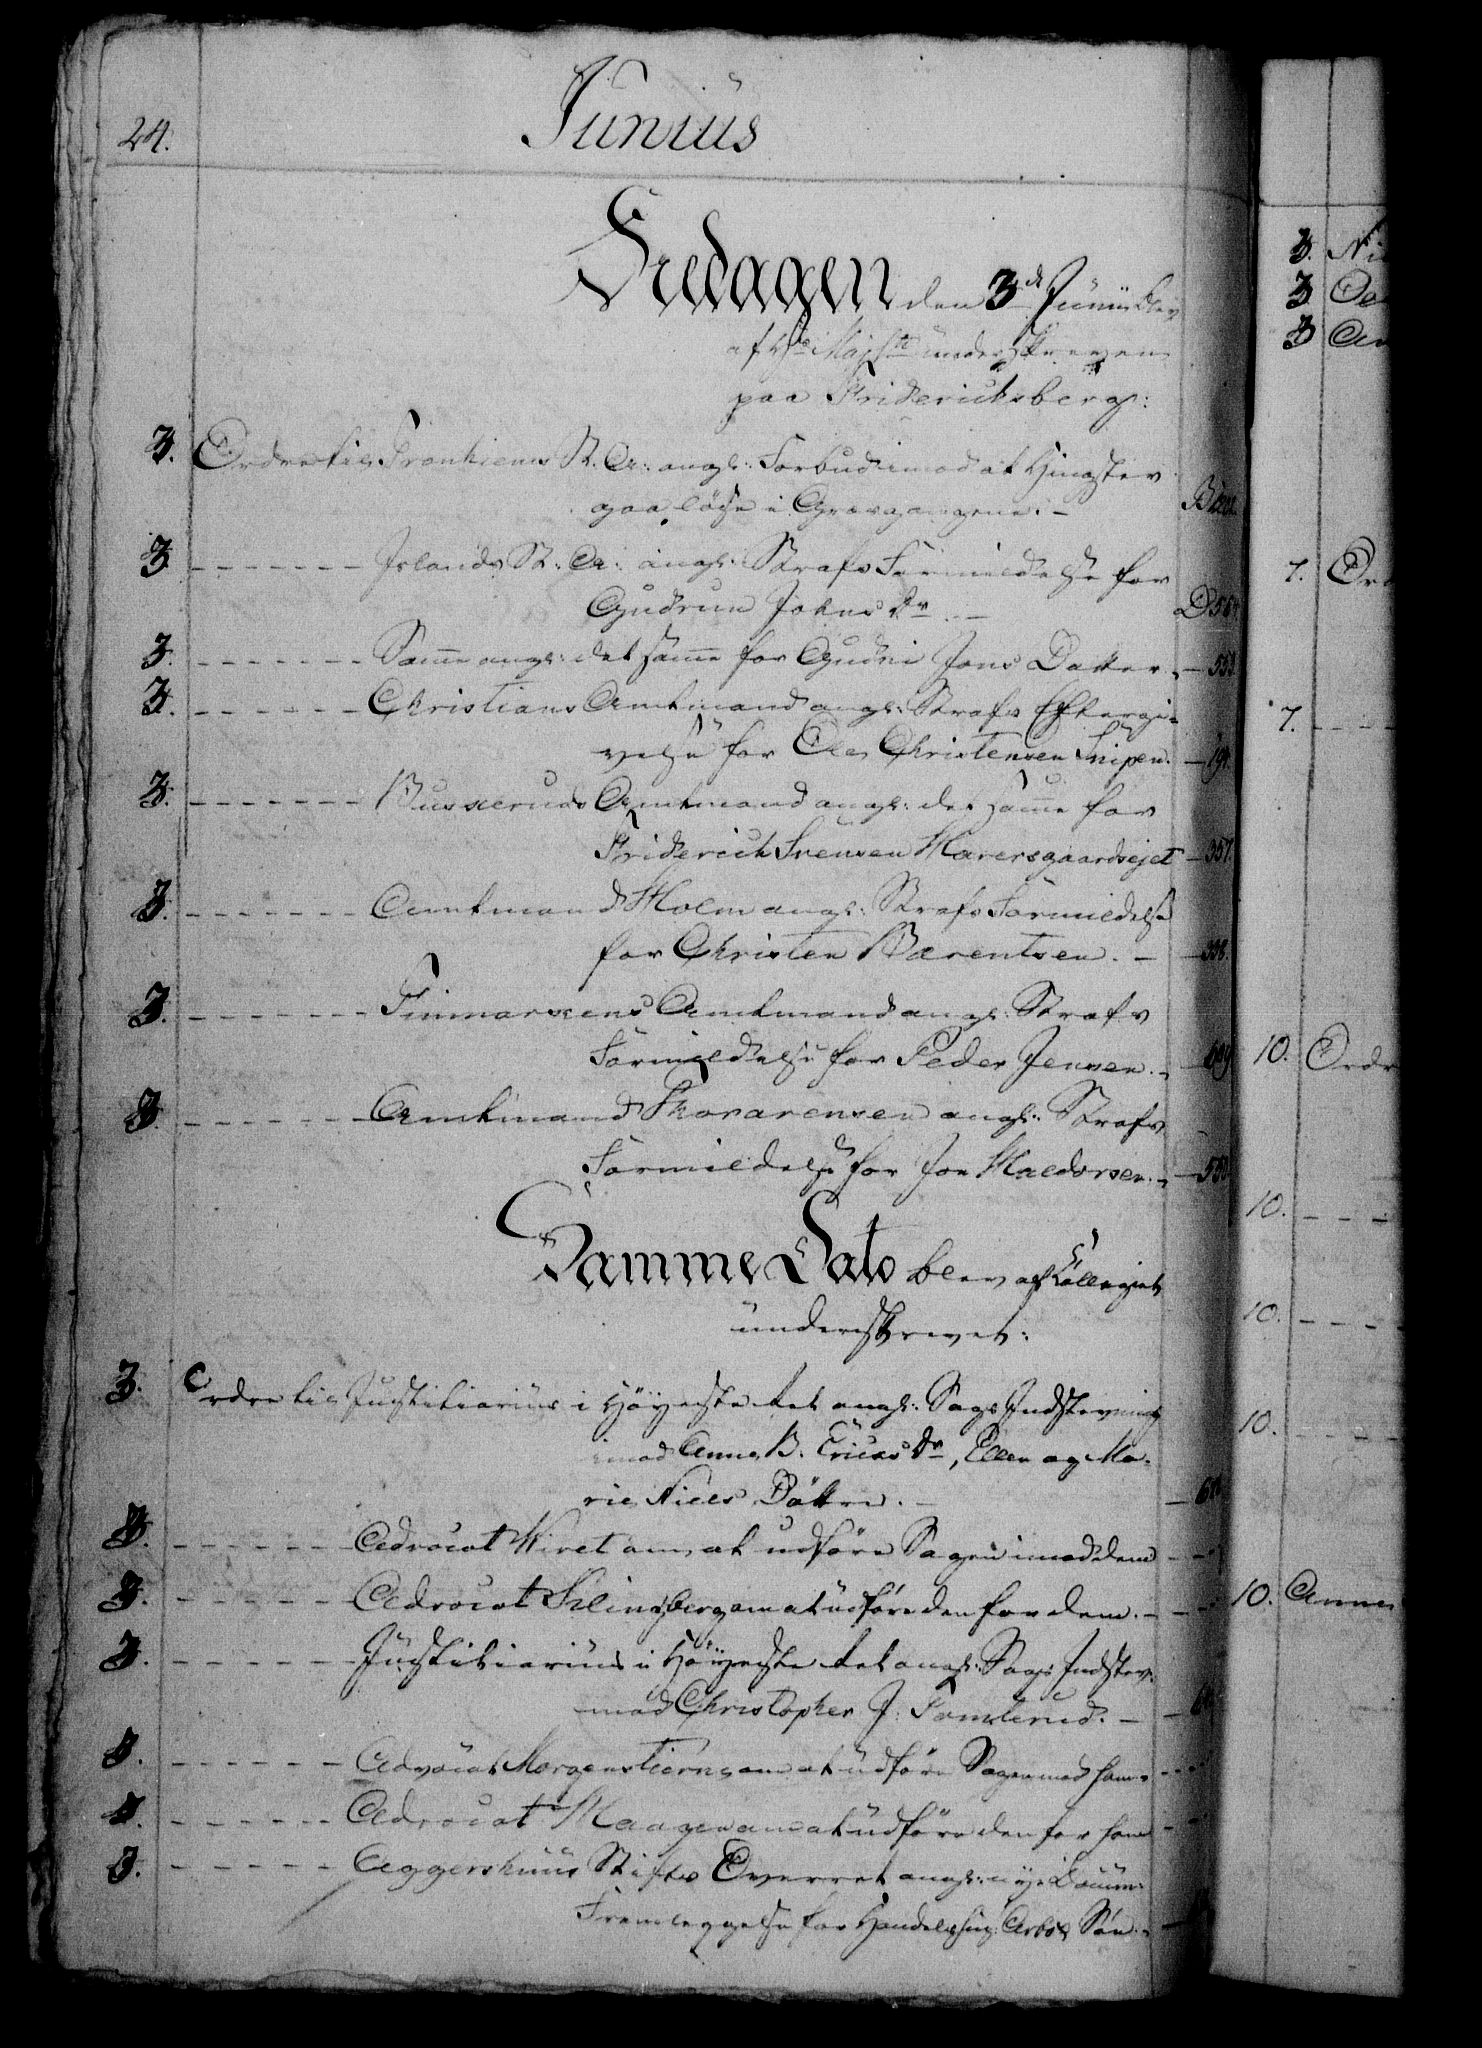 24.
Junius
Fredagen den 3de Junii blev
af Hs Majstt underskreven
paa Friderichsberg:
3. Ordre til Tronhiems St. A: angl: Forbud imod at Hingster
gaae løse i Græsgangene. -
3 - - - - - - - Islands St: A: angl: Straffs Formildelse for
Gudrun Johns Dr. - D 554
3. - - - - - - - Samme angl: det samme for Gudni Jons Datter. - 553.
3. - - - - - - - Christians Amtmand angl: Straffs Eftergi-
velse for Ole Christensen Snipen. - 194.
3. - - - - - - - Busseruds Amtmand angl: det samme for
Friderich Svensen Haversgaardsejet - 357.
3. - - - - - - - Amtmand Holm angl: Straffs Formildelse
for Christen Bærentsen. - 338.
3. - - - - - - - Finmarkens Amtmand angl: Straffs
Formildelse for Peder Jensen. - 609
3. - - - - - - - Amtmand Thorarensen angl: Straffs
Formildelse for Jon Haldorsen. - 550
Samme Dato blev af Collegiet
underskrevet:
3. Ordre til Justitiarius i Høyeste Ret angl: Sags Indstevning
imod Anne B. Ericks Dr, Ellen og Ma-
rie Niels Døttre. -
3. - - - - - - - Advocat Wivet om at udføre Sagen imod dem - -
3. - - - - - - - Advocat Klingberg om at udføre den for dem. - -
3. - - - - - - - Justitiarius i Høyeste Ret angl: Sags Indstev:
mod Christopher J: Tomlerud. -
3. - - - - - - - Advocat Morgenstierne om at udføre Sagen mod ham - - -
3. - - - - - - - Advocat Haagen om at udføre den for ham - -
3. - - - - - - - Aggershuus Stifts Overret angl: nye Docum:
Fremleggelse for Handelshuuset Arbo & Søn. -
3. Ni
3
3
7. Ord
7. - - - -
10. Ordr
10. - - -
10. - - - -
10. - - - -
10. Annes